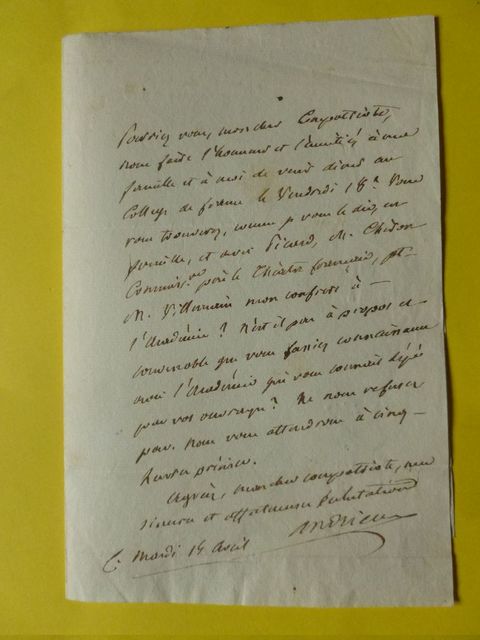 Pourriez vous, mon cher Compatriote,
nous faire l'honneur et l'amitié, à ma
famille et à moi de venir diner au
Collège de france le Vendredi 18? Vous
vous trouverez, comme je vous le dis, en
famille, et avec Picard, M.
Commis. pour le Théatre francais, et
M. Villemain mon confrère à
l'Académie? N'est il pas à propos et
convenable que vous fassiez connaissance
avec l'Académie qui vous connait déjà
par vos ouvrages? Ne nous refusez
pas. Nous vous attendrons à cinq
heures précises.
Agréez, mon cher compatriote, mes
sincères et affectueuses Salutations
Andrieux
C. Mardi 15 avril